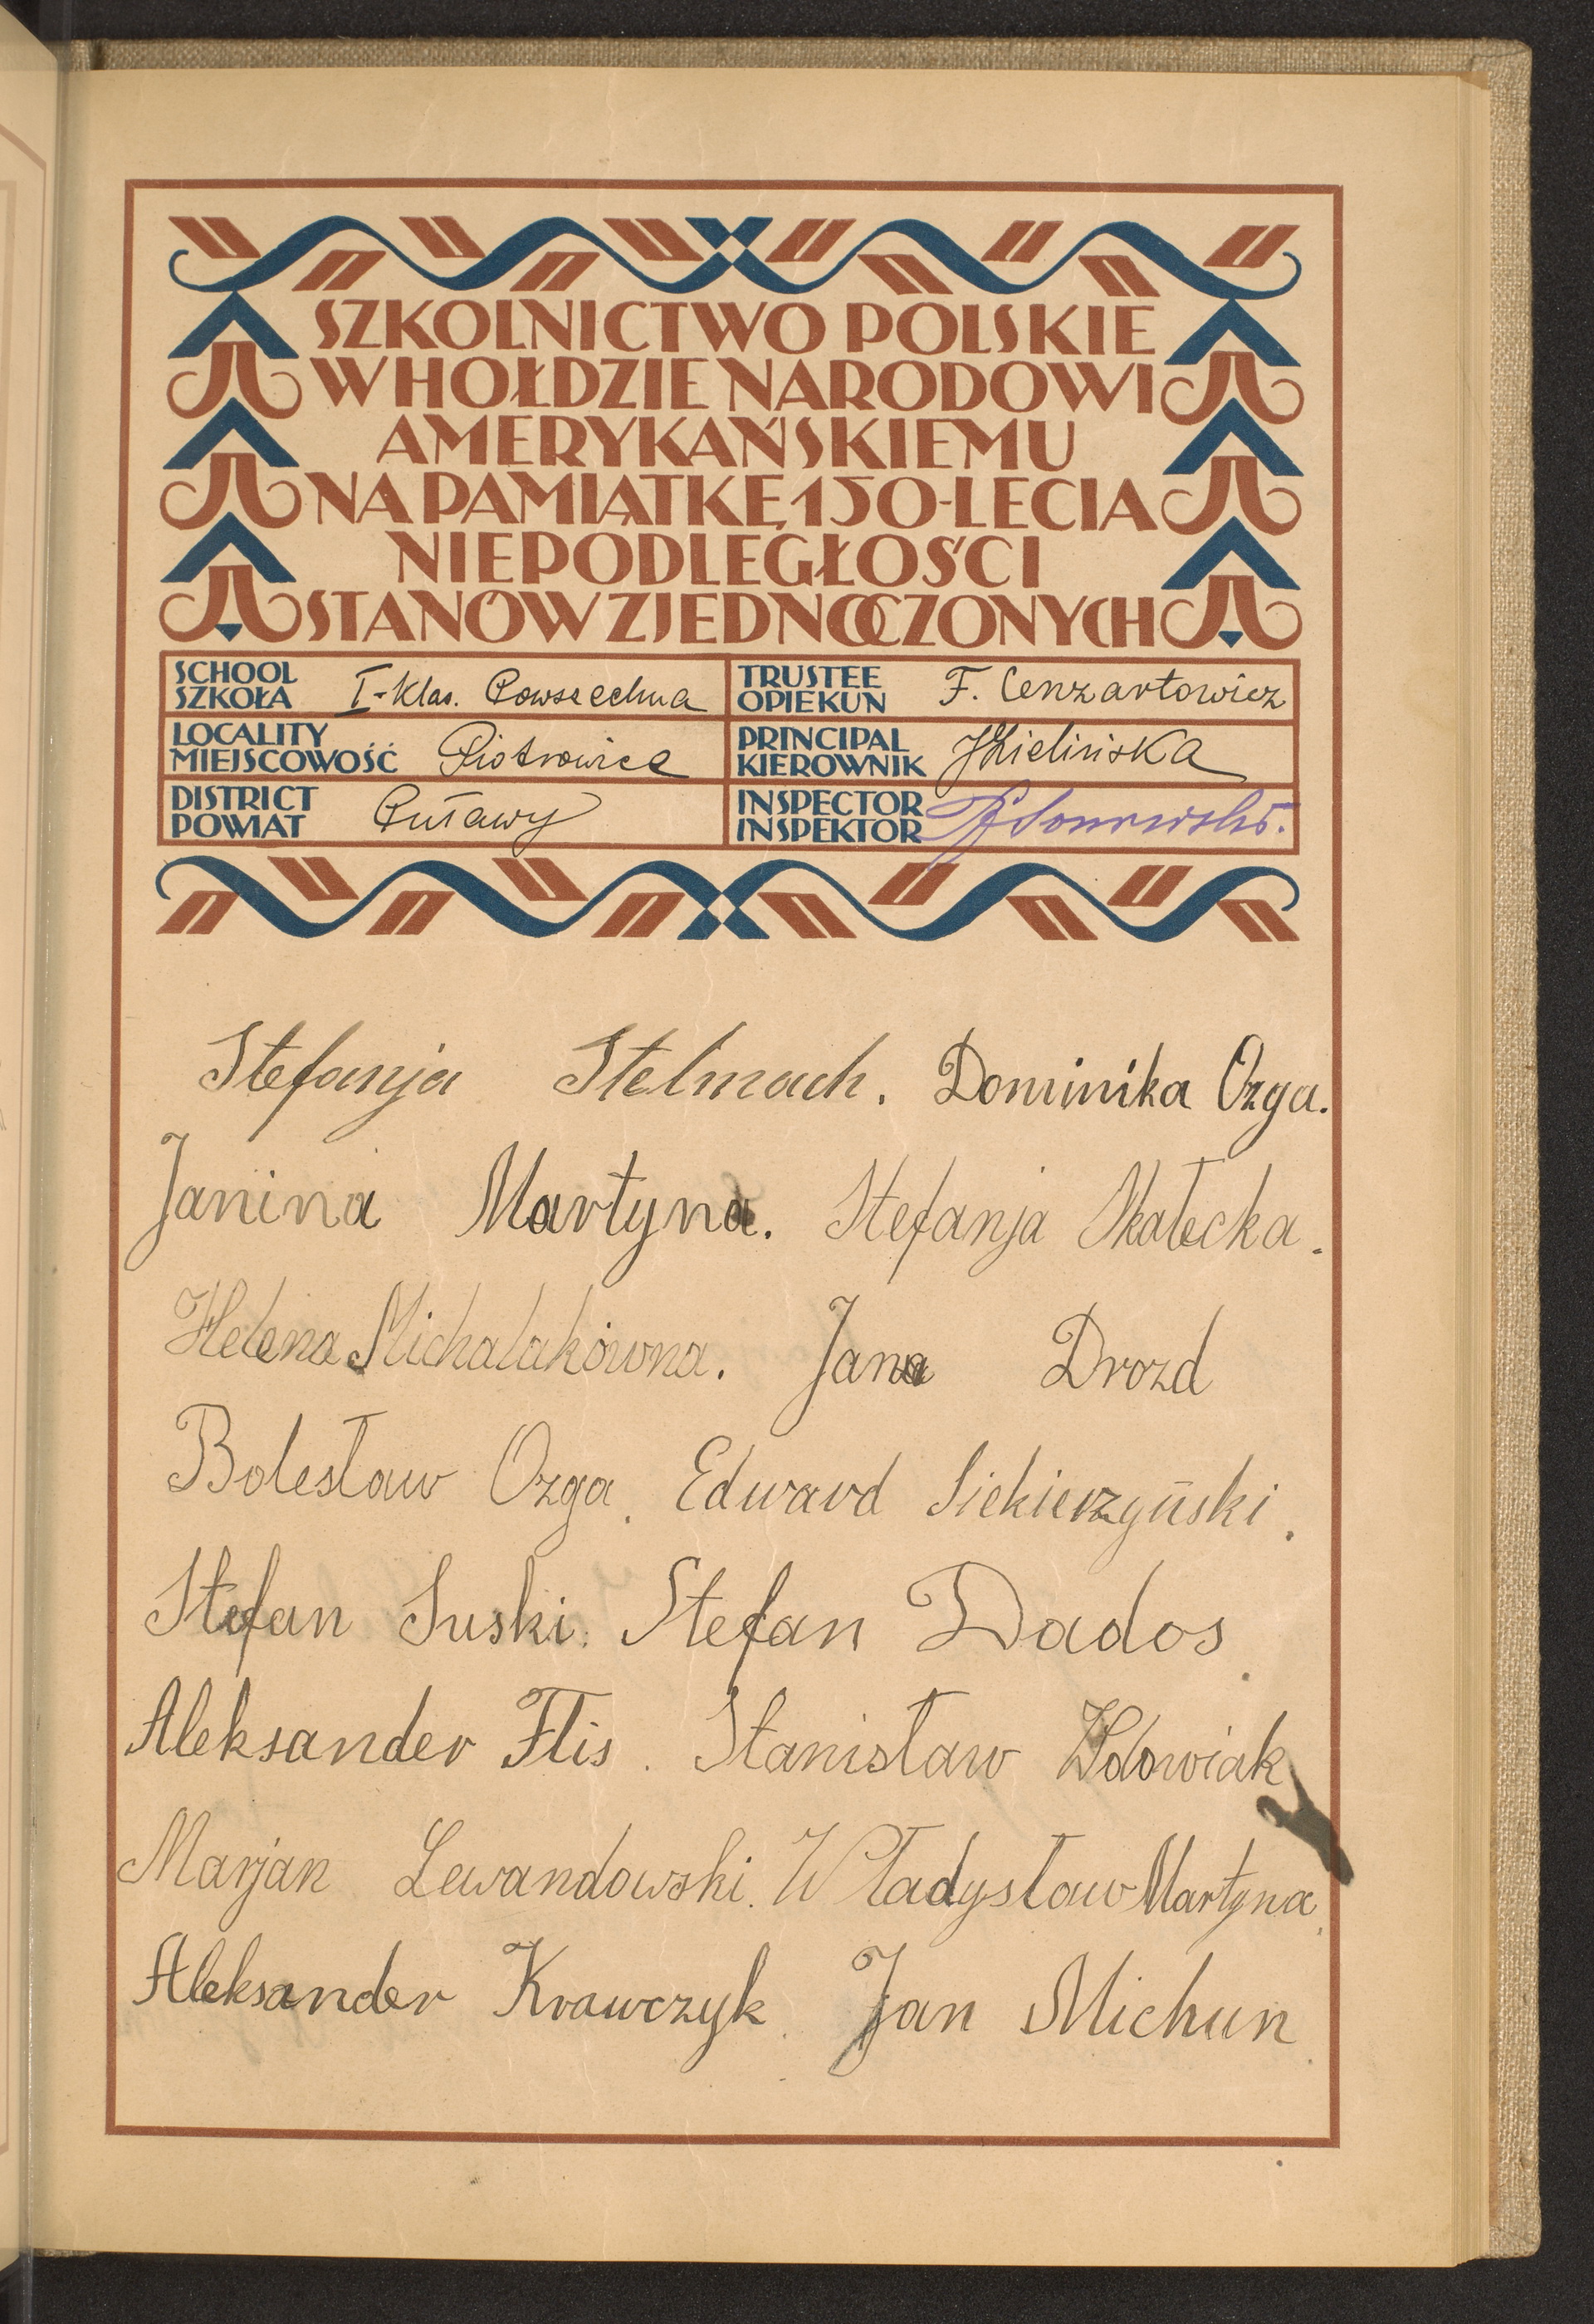 SZKOLNICTWO POLSKIE
W HOŁDZIE NARODOWI
AMERYKAŃSKIEMU
NA PAMIĄTKĘ 150-LECIA
NIEPODLEGŁOŚCI
STANÓW ZJEDNOCZONYCH
SCHOOL
SZKOŁA I-klas. Powszechna
TRUSTEE
OPIEKUN F. Cenzartowicz
LOCALITY
MIEJSCOWOŚĆ Piotrowice
PRINCIPAL
KIEROWNIK JZielińska
DISTRICT
POWIAT Puławy
INSPECTOR
INSPEKTOR
Stefanja Stelmach. Dominika Ozga.
Janina Martyna. Stefanja Skałecka.
Helena Michalakówna. Jana Drozd
Bolesław Ozga. Edward Siekierzyński.
Stefan Suski. Stefan Dados.
Aleksander Flis. Stanisław Wdowiak
Marjan Lewandowski. Władysław Martyna.
Aleksander Krawczyk. Jan Michun.